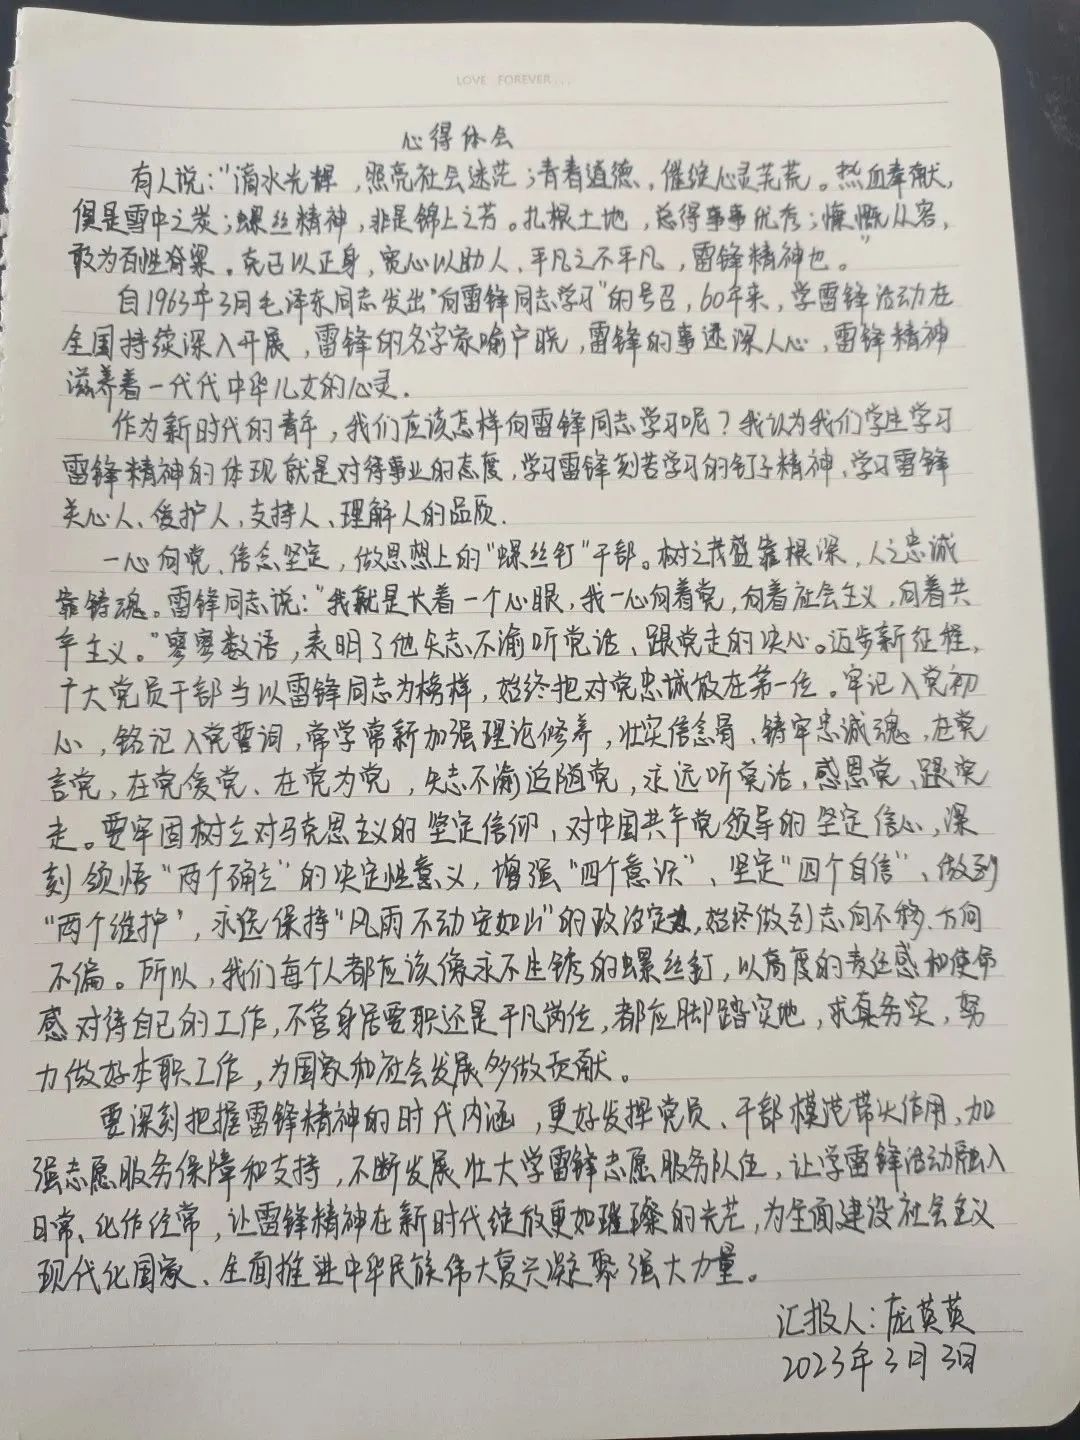 LOVE FOREVER...
心得体会
有人说：“滴水光辉，照亮社会迷茫；青春道德，催绽心灵芜荒。热血奉献，
俱是雪中之炭；螺丝精神，非是锦上之芳。扎根土地，总得事事优秀；慷慨从容，
敢为百姓脊梁。克己以正身，宽心以助人，平凡之不平凡，雷锋精神也。”
自1963年3月毛泽东同志发出“向雷锋同志学习”的号召，60年来，学雷锋活动在
全国持续深入开展，雷锋的名字家喻户晓，雷锋的事迹深入人心，雷锋精神
滋养着一代代中华儿女的心灵.
作为新时代的青年，我们应该怎样向雷锋同志学习呢？我认为我们学生学习
雷锋精神的体现就是对待事业的态度，学习雷锋刻苦学习的钉子精神，学习雷锋
关心人、爱护人，支持人、理解人的品质.
一心向党、信念坚定，做思想上的“螺丝钉”干部。树之茂盛靠根深，人之忠诚
靠铸魂。雷锋同志说：“我就是长着一个心眼，我一心向着党，向着社会主义，向着共
产主义。”寥寥数语，表明了他矢志不渝听党话、跟党走的决心。迈步新征程，
广大党员干部当以雷锋同志为榜样，始终把对党忠诚放在第一位。牢记入党初
心，铭记入党誓词，常学常新加强理论修养，壮实信念骨、铸牢忠诚魂，在党
言党，在党爱党、在党为党，矢志不渝追随党，永远听党话，感恩党、跟党
走。要牢固树立对马克思主义的坚定信仰、对中国共产党领导的坚定信心，深
刻领悟“两个确立”的决定性意义，增强“四个意识”、坚定“四个自信”、做到
“两个维护”，永远保持“风雨不动安如山”的政治定力，始终做到志向不移、方向
不偏。所以，我们每个人都应该像永不生锈的螺丝钉，以高度的责任感和使命
感对待自己的工作，不管身居要职还是平凡岗位，都应脚踏实地，求真务实，努
力做好本职工作，为国家和社会发展多做贡献。
要深刻把握雷锋精神的时代内涵，更好发挥党员、干部模范带头作用，加
强志愿服务保障和支持，不断发展壮大学雷锋志愿服务队伍，让学雷锋活动融入
日常、化作经常，让雷锋精神在新时代绽放更加璀璨的光芒，为全面建设社会主义
现代化国家、全面推进中华民族伟大复兴凝聚强大力量。
汇报人：庞英英
2023年3月3日